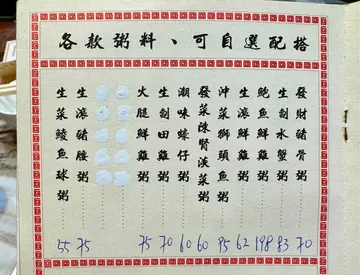 各款粥料、可自選配搭
發財豬骨粥 70
生制水蟹粥 83
鮑魚鮮雞粥 198
生滾鮮魚粥 62
沖菜獅頭魚粥 85
發菜陳腎淡菜粥 60
潮味蠔仔粥 60
生制田雞粥 70
火腿鮮雞粥 75
生滾豬腰粥 75
生菜鯪魚球粥 55